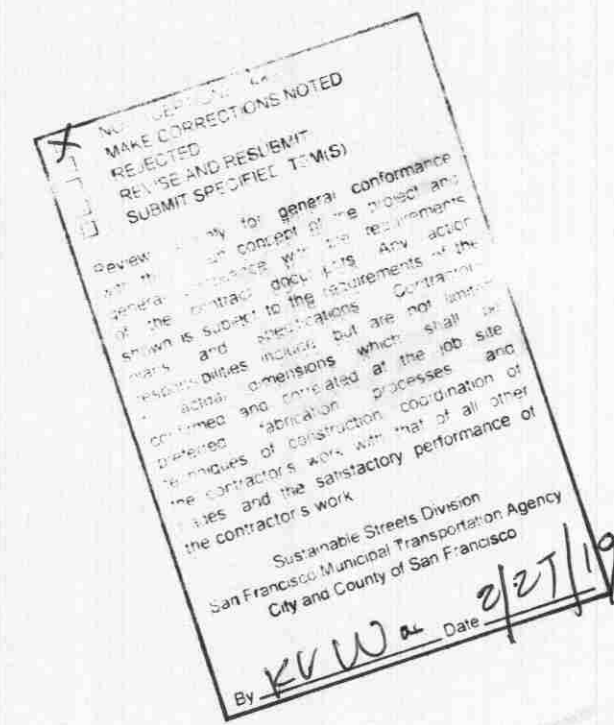 X NO EXCEPTIONS
MAKE CORRECTIONS NOTED
REJECTED
REVISE AND RESUBMIT
SUBMIT SPECIFIED ITEM(S)
Review for general conformance
with the concept of the project and
general with the requirements
of the contract documents Any action
shown is subject to the requirements of the
plans and specifications Contractor
responsibilities include but are not limited
actual dimensions which shall be
confirmed and correlated at the job site
preferred fabrication processes and
techniques of construction coordination of
the contractor's work with that of all other
trades and the satisfactory performance of
the contractor's work
Sustainable Streets Division
San Francisco Municipal Transportation Agency
City and County of San Francisco
By Date 2/27/19